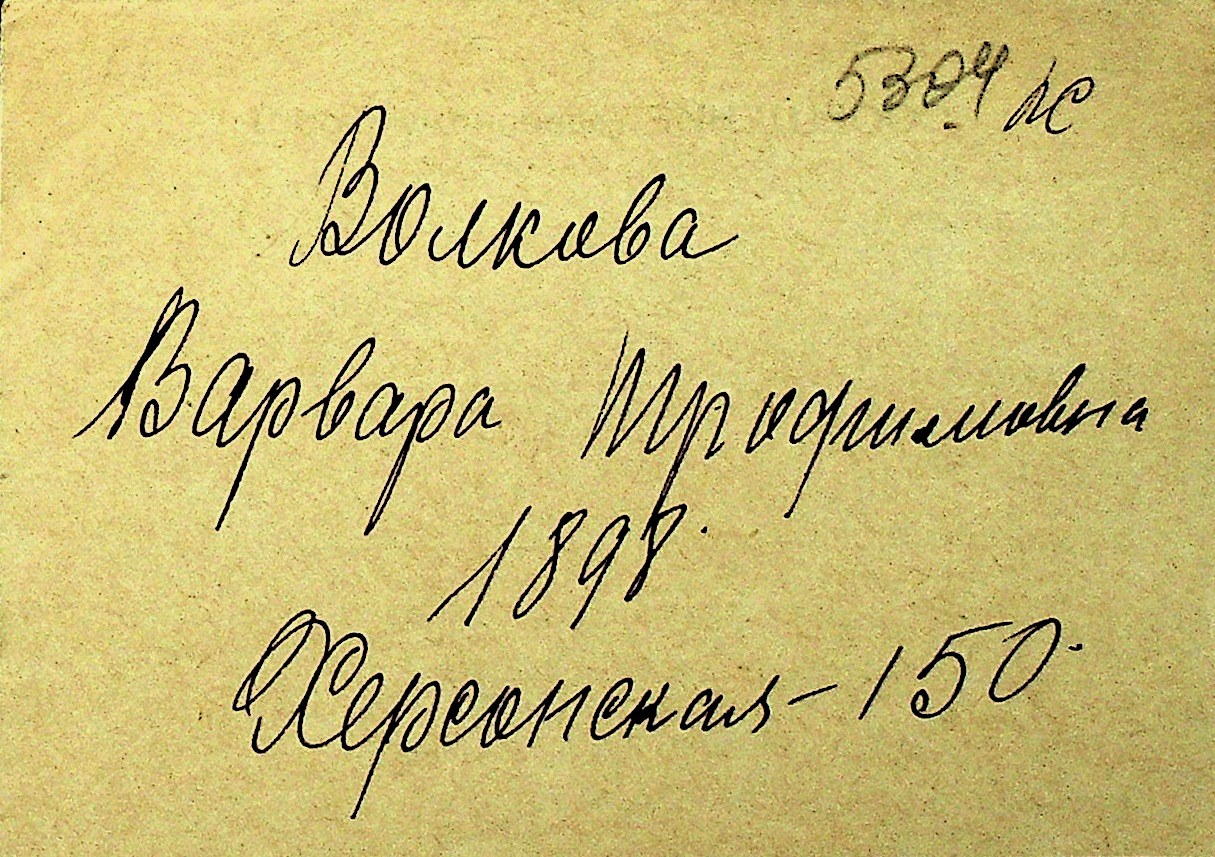 5304
Волкова
Варвара Трофимовна
1898.
Херсонская - 150.